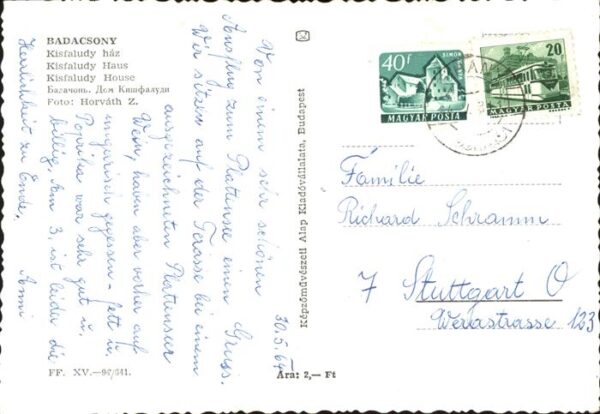 BADACSONY
Kisfaludy ház
Kisfaludy Haus
Kisfaludy House
Бадачонь. Дом Кишфалуди
Foto: Horváth Z.
30.5.64
Von einem sehr schönen
Ausflug zum Plattensee einen Gruss.
Wir sitzen auf der Terasse bei einem
ausgezeichneten Plattenseer
Wein, haben aber vorher auf
ungarisch gegessen - fett u.
Paprika war sehr gut u.
billig. Am 3. ist leider die
Herrlichkeit zu Ende.
Anni
FF. XV.—94/641.
Ára: 2,— Ft
Képzőművészeti Alap Kiadóvállalata, Budapest
40f
SIMON
MAGYAR POSTA
20
MAGYAR POSTA
Familie
Richard Schramm
7 Stuttgart O
Werastrasse 123